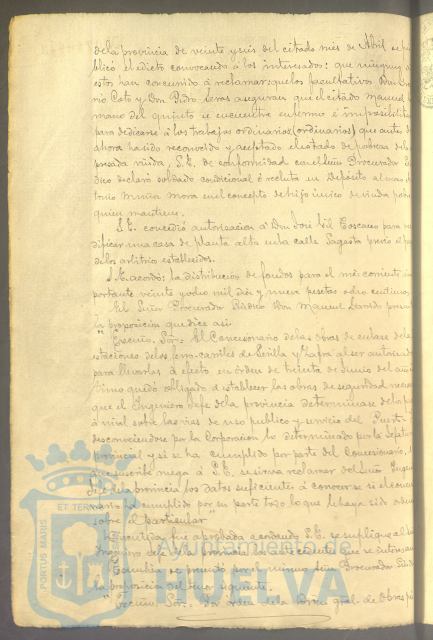 de la provincia de veinte y seis del citado mes de Abril se pu
blicó el edicto convocando á los interesados: que ninguno de
estos han concurrido á reclamar: que los facultativos Don
nio Coto y Don Pedro Seras aseguran que el citado Manuel
mano del quinto se encuentra enfermo é imposibilitado
para dedicarse á los trabajos ordinarios (ordinarios) que antes de
ahora ha sido reconocido y aceptado el estado de pobreza de la
presada viuda, S.E. de conformidad con el Señor Procurador
dico declaró soldado condicional ó recluta en Depósito al mozo
tonio Mora en el concepto de hijo único de viuda pobre
quien mantiene.
S.E. concedió autorizacion á Don José Gil Toscano para
dificar una casa de planta alta en la calle Sagasta previo el pago
de los arbitrios establecidos.
S.E. acordó: la distribucion de fondos para el mes corriente im
portante veinte y ocho mil diez y nueve pesetas ocho centimos.
El Señor Procurador Síndico Don Manuel presentó
la proposicion que dice así:
"Excmo. Sor: El Concesionario de las obras de enlase de las
estaciones de los ferro-carriles de Sevilla y Zafra al ser autorizado
para llevarlas á efecto en órden de treinta de Junio del año
timo quedó obligado á establecer las obras de seguridad
que el Ingeniero Jefe de la provincia determinase de los pasos
á nivel sobre las vias de uso público y servicio del Puerto
desconociendose por la Corporacion lo determinado por la Jefatura
provincial y si se ha cumplido por parte del Concesionario,
que suscribe ruega á S.E. se sirva reclamar del Señor Ingeniero
Jefe de la provincia los datos suficientes á conocer si el
nario ha cumplido por su parte todo lo que le haya sido
sobre el particular.
Y fué aprobada acordando S.E. se suplique al
Ingeniero Jefe de la provincia los antecedentes que se
Tambien se presentó por el mismo Señor Procurador Síndico
la proposicion del tenor siguiente.
"Excmo. Sor: Por órden de la Direc. gral. de Obras
PORTUS MARIS
ET TERRAE
Ayuntamiento de
HUELVA